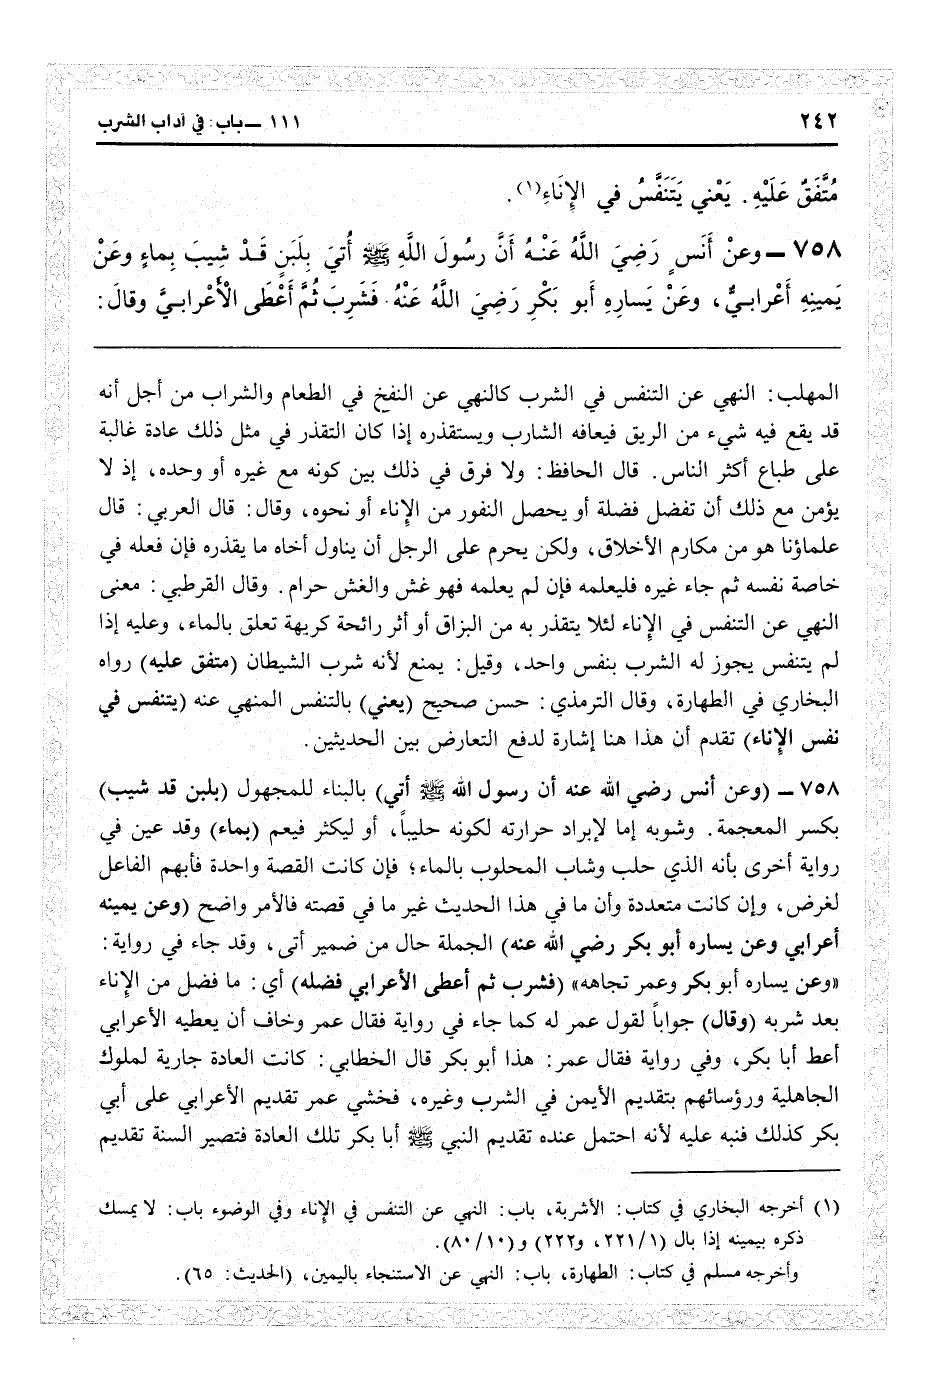 ٢٤٢ ١١١ ــ باب: في آداب الشرب
مُتَّفَقٌ عَلَيْهِ. يَعْني يَتَنَفَّسُ في الإِنَاءِ(١).
٧٥٨ ــ وعنْ أَنَسٍ رَضِيَ اللَّهُ عَنْـهُ أَنَّ رسُولَ اللَّهِ ﷺ أُتيَ بِلَبَنٍ قَـدْ شِيبَ بِماءٍ وعَنْ
يَمينِهِ أَعْرابـيٌّ، وعَنْ يَسارِهِ أبو بَكْرٍ رَضِيَ اللَّهُ عَنْهُ فَشَرِبَ ثُمَّ أَعْطَى الْأَعْرابـيَّ وقالَ:
المهلب: النهي عن التنفس في الشرب كالنهي عن النفخ في الطعام والشراب من أجل أنه
قد يقع فيه شيء من الريق فيعافه الشارب ويستقذره إذا كان التقذر في مثل ذلك عادة غالبة
على طباع أكثر الناس. قال الحافظ: ولا فرق في ذلك بين كونه مع غيره أو وحده، إذ لا
يؤمن مع ذلك أن تفضل فضلة أو يحصل النفور من الإِناء أو نحوه، وقال: قال العربي: قال
علماؤنا هو من مكارم الأخلاق، ولكن يحرم على الرجل أن يناول أخاه ما يقذره فإن فعله في
خاصة نفسه ثم جاء غيره فليعلمه فإن لم يعلمه فهو غش والغش حرام. وقال القرطبي: معنى
النهي عن التنفس في الإِناء لئلا يتقذر به من البزاق أو أثر رائحة كريهة تعلق بالماء، وعليه إذا
لم يتنفس يجوز له الشرب بنفس واحد، وقيل: يمنع لأنه شرب الشيطان (متفق عليه) رواه
البخاري في الطهارة، وقال الترمذي: حسن صحيح (يعني) بالتنفس المنهي عنه (يتنفس في
نفس الإِناء) تقدم أن هذا هنا إشارة لدفع التعارض بين الحديثين.
٧٥٨ ــ (وعن أنس رضي الله عنه أن رسول الله ﷺ أتي) بالبناء للمجهول (بلبن قد شيب)
بكسر المعجمة. وشوبه إما لإبراد حرارته لكونه حليباً، أو ليكثر فيعم (بماء) وقد عين في
رواية أخرى بأنه الذي حلب وشاب المحلوب بالماء؛ فإن كانت القصة واحدة فأبهم الفاعل
لغرض، وإن كانت متعددة وأن ما في هذا الحديث غير ما في قصته فالأمر واضح (وعن يمينه
أعرابي وعن يساره أبو بكر رضي الله عنه) الجملة حال من ضمير أتى، وقد جاء في رواية:
«وعن يساره أبو بكر وعمر تجاهه» (فشرب ثم أعطى الأعرابي فضله) أي: ما فضل من الإِناء
بعد شربه (وقال) جواباً لقول عمر له كما جاء في رواية فقال عمر وخاف أن يعطيه الأعرابي
أعط أبا بكر، وفي رواية فقال عمر: هذا أبو بكر قال الخطابي: كانت العادة جارية لملوك
الجاهلية ورؤسائهم بتقديم الأيمن في الشرب وغيره، فخشي عمر تقديم الأعرابي على أبي
بكر كذلك فنبه عليه لأنه احتمل عنده تقديم النبي ﷺ أبا بكر تلك العادة فتصير السنة تقديم
(١) أخرجه البخاري في كتاب: الأشربة، باب: النهي عن التنفس في الإِناء وفي الوضوء باب: لا يمسك
ذكره بيمينه إذا بال (٢٢١/١، و٢٢٢) و(٨٠/١٠).
وأخرجه مسلم في كتاب: الطهارة، باب: النهي عن الاستنجاء باليمين، (الحديث: ٦٥).